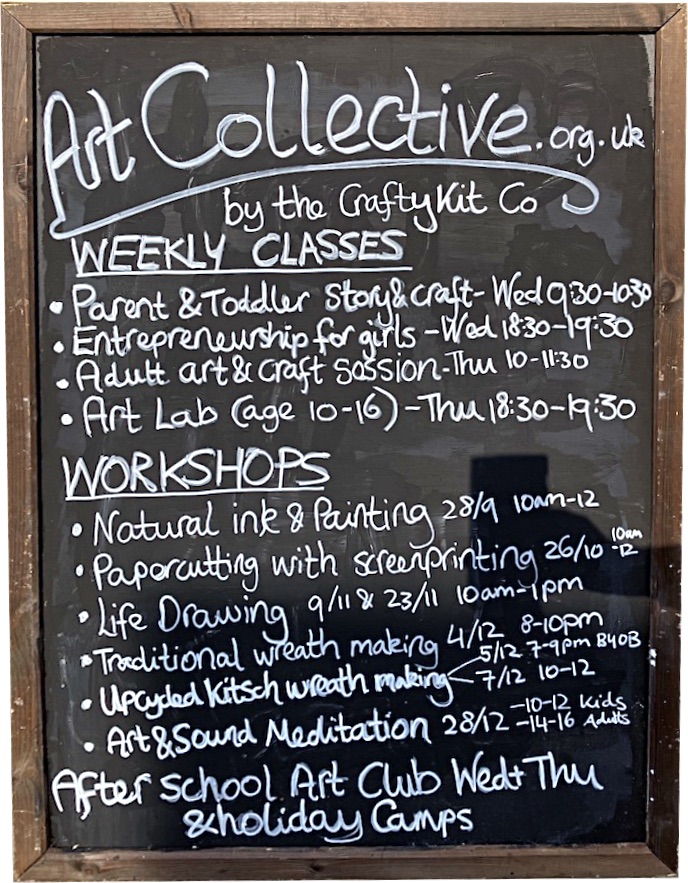 Art Collective.org.uk
by the CraftyKit Co
WEEKLY CLASSES
• Parent & Toddler Story & craft - Wed 9:30-1030
• Entrepreneurship for girls - Wed 18:30-19:30
• Adult art & craft session - Thu 10-11:30
• Art Lab (age 10-16) - Thu 18:30-19:30
WORKSHOPS
• Natural ink & Painting 28/9 10am-12
• Papercutting with screenprinting 26/10 10am-12
• Life Drawing 9/11 & 23/11 10am-1pm
• Traditional wreath making 4/12 8-10pm
5/12 7-9pm BYOB
• Upcycled Kitsch wreath making 7/12 10-12
• Art & Sound Meditation 28/12 -10-12 Kids
-14-16 Adults
After school Art Club Wed + Thu
& holiday Camps